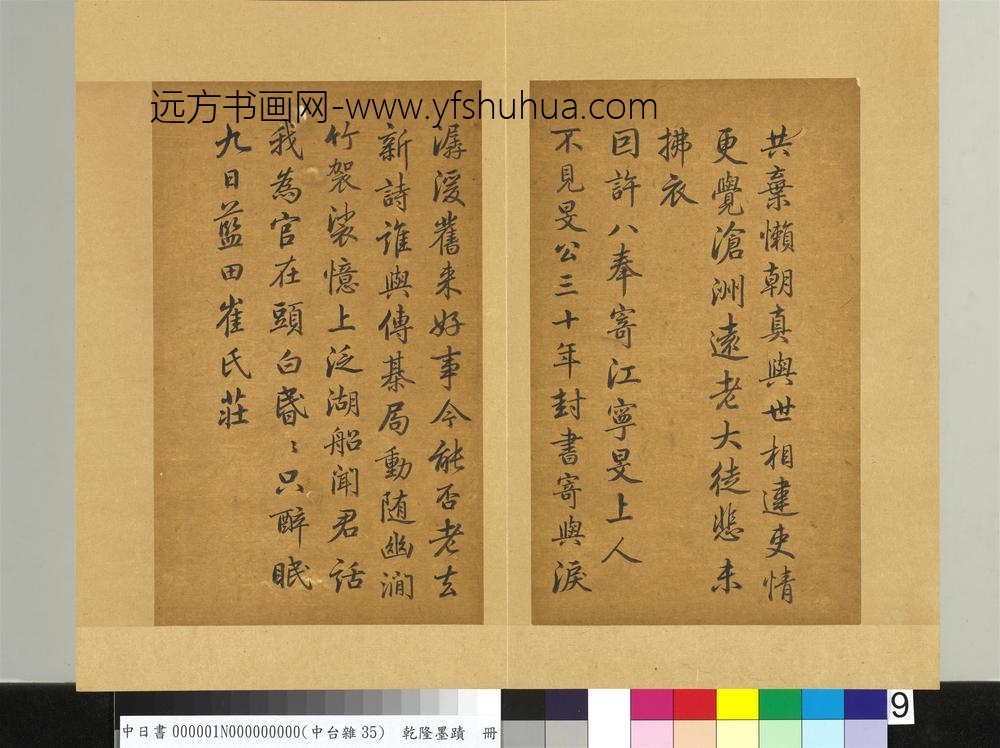 远方书画网-www.yfshuhua.com
共棄懶朝真與世相違吏情
更覺滄洲遠老大徒悲未
拂衣
囙許八奉寄江寧旻上人
不見旻公三十年封書寄與淚
潺湲舊来好事今能否老去
新詩誰與傳棊局動随幽澗
竹袈裟憶上泛湖船聞君話
我為官在頭白昏〻只醉眠
九日藍田崔氏莊
中日書 000001N000000000(中台雜 35) 乾隆墨蹟 冊
9